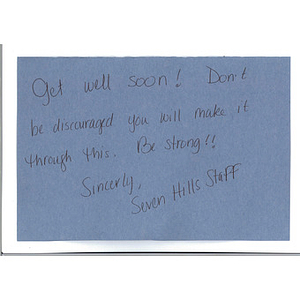 Get well soon! Don't
be discouraged you will make it
through this. Be strong!!
Sincerly,
Seven Hills Staff